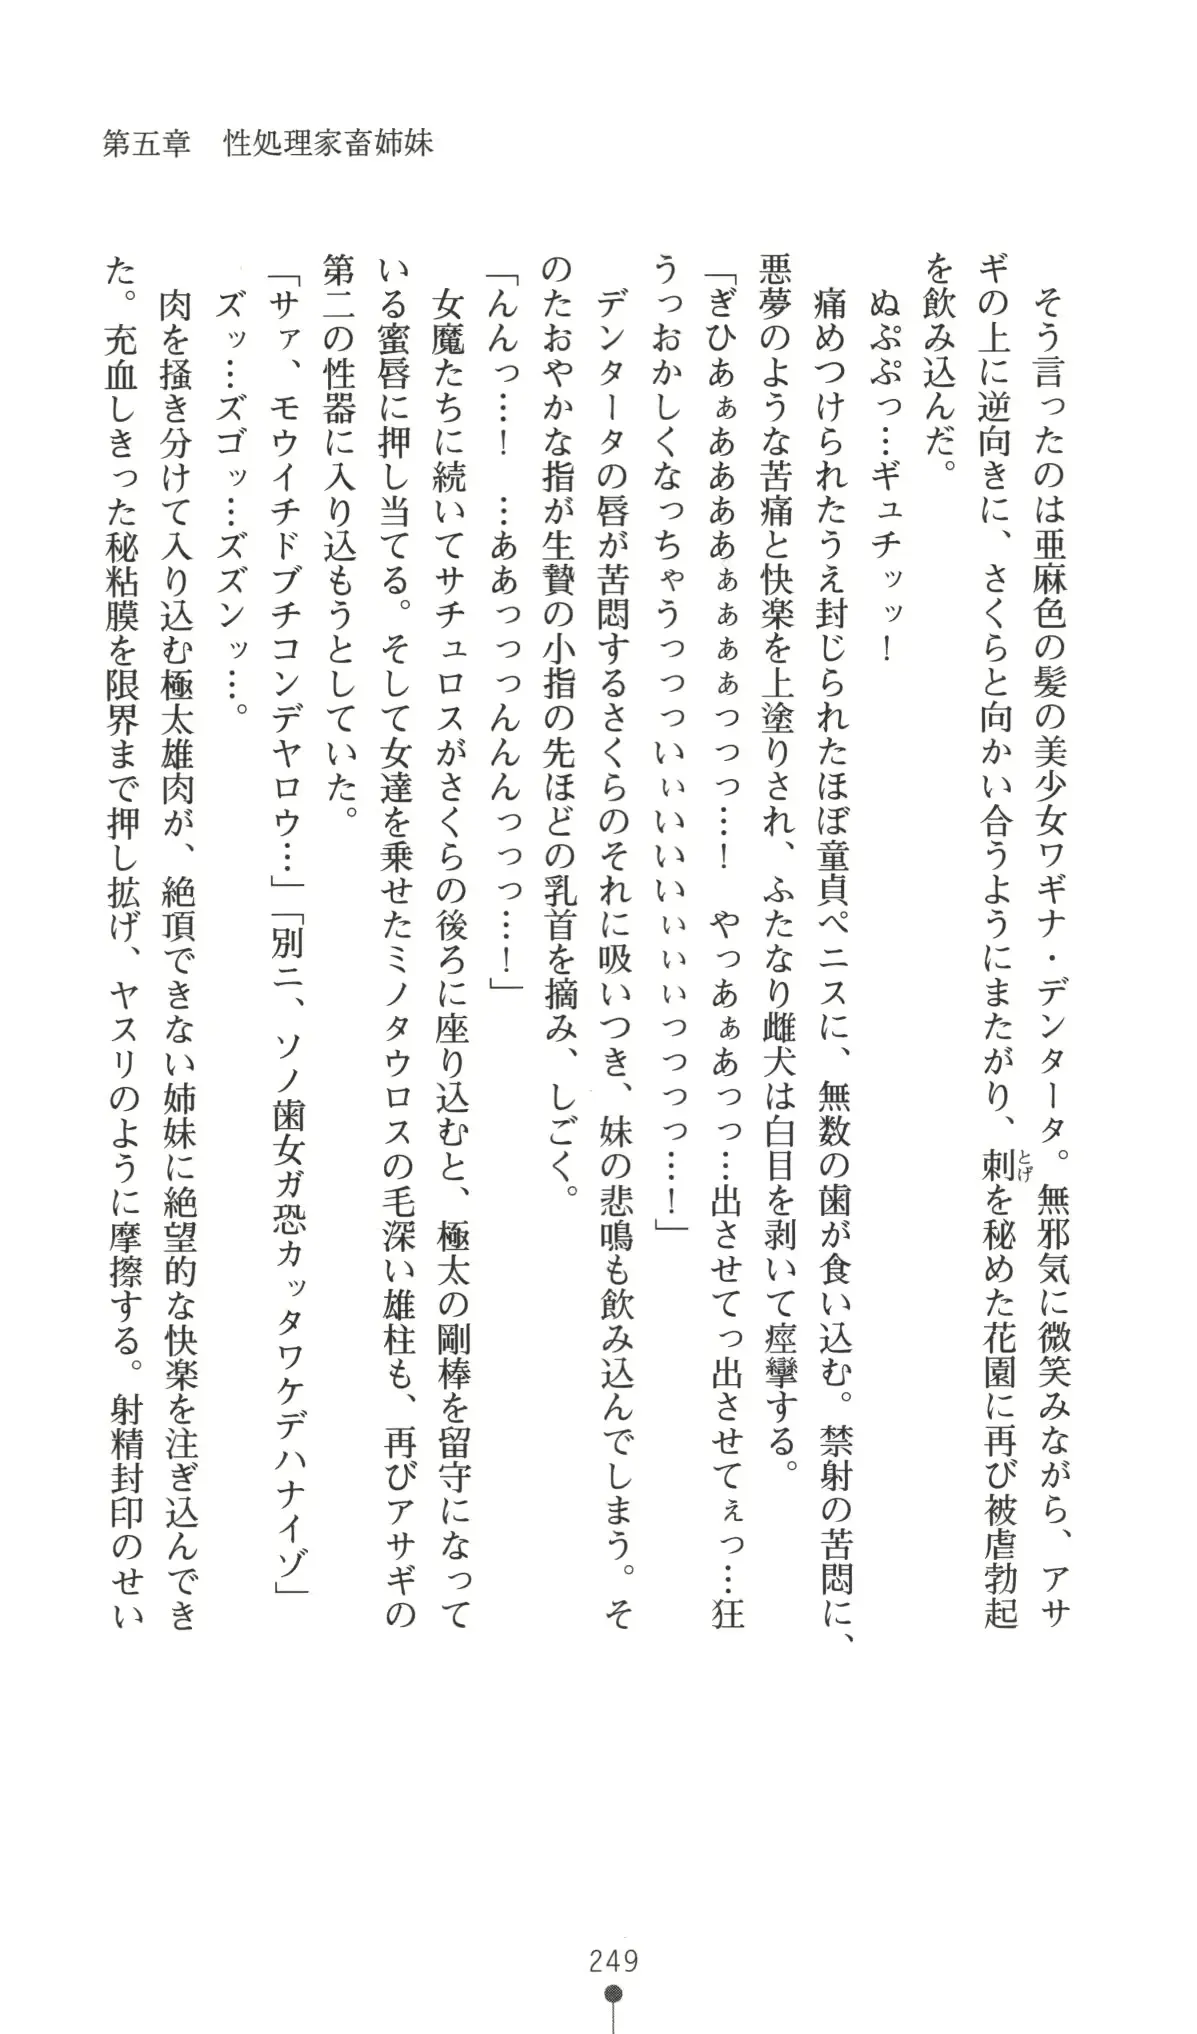 第五章　性処理家畜姉妹
　そう言ったのは亜麻色の髪の美少女ワギナ・デンタータ。無邪気に微笑みながら、アサ
ギの上に逆向きに、さくらと向かい合うようにまたがり、刺とげを秘めた花園に再び被虐勃起
を飲み込んだ。
　ぬぷぷっ…ギュチッッ！
　痛めつけられたうえ封じられたほぼ童貞ペニスに、無数の歯が食い込む。禁射の苦悶に、
悪夢のような苦痛と快楽を上塗りされ、ふたなり雌犬は白目を剥いて痙攣する。
「ぎひあぁあああぁぁぁぁっっっ…！　やっあぁあっっ…出させてっ出させてぇっ…狂
うっおかしくなっちゃうっっっいぃいいいぃぃぃっっっっ…！」
　デンタータの唇が苦悶するさくらのそれに吸いつき、妹の悲鳴も飲み込んでしまう。そ
のたおやかな指が生贄の小指の先ほどの乳首を摘み、しごく。
「んんっ…！　…ああっっっんんんっっっ…！」
　女魔たちに続いてサチュロスがさくらの後ろに座り込むと、極太の剛棒を留守になって
いる蜜唇に押し当てる。そして女達を乗せたミノタウロスの毛深い雄柱も、再びアサギの
第二の性器に入り込もうとしていた。
「サァ、モウイチドブチコンデヤロウ…」「別ニ、ソノ歯女ガ恐カッタワケデハナイゾ」
　ズッ…ズゴッ…ズズンッ…。
　肉を掻き分けて入り込む極太雄肉が、絶頂できない姉妹に絶望的な快楽を注ぎ込んでき
た。充血しきった秘粘膜を限界まで押し拡げ、ヤスリのように摩擦する。射精封印のせい
249